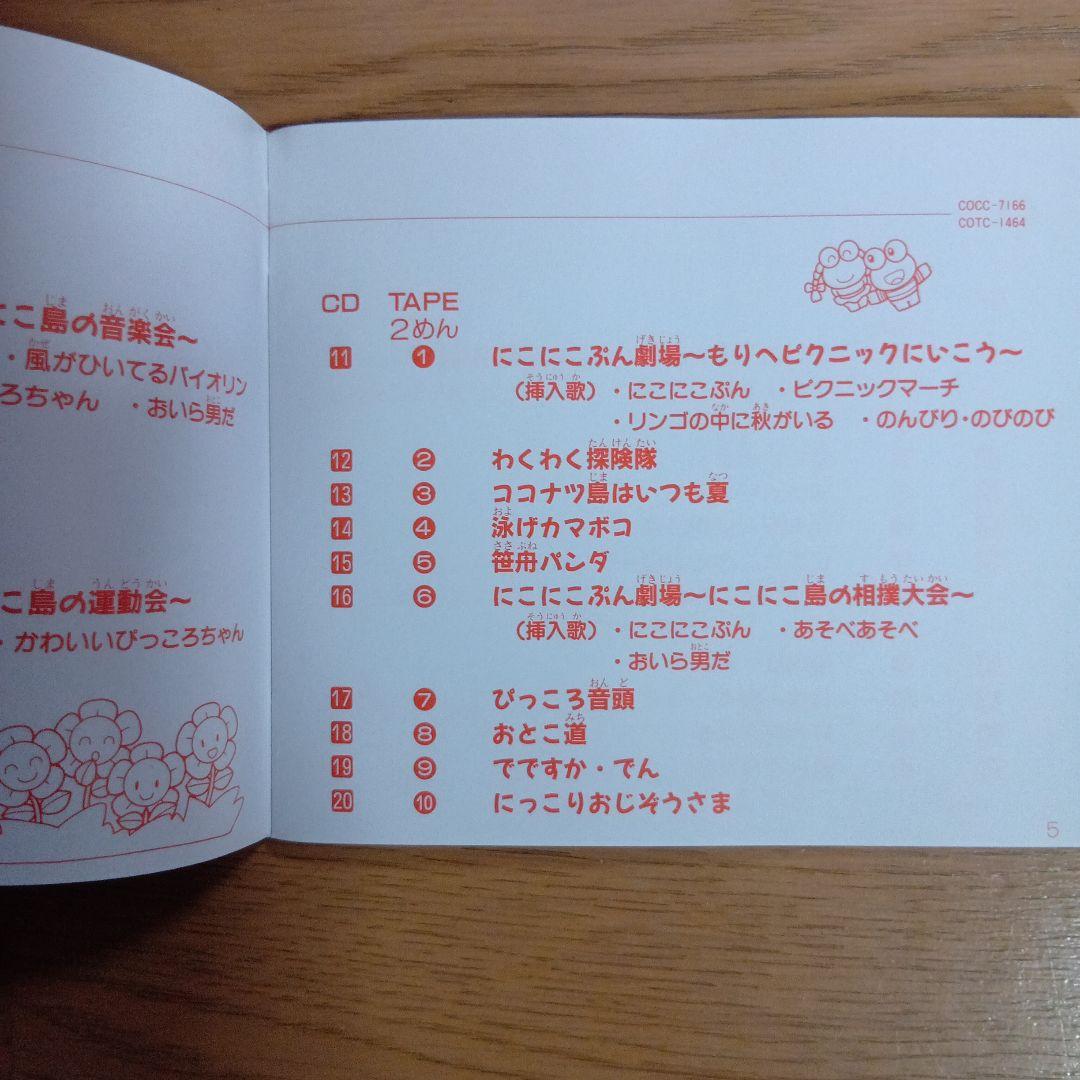 にこ島の音楽会～
・風がひいてるバイオリン
ろちゃん ・おいら男だ
こ島の運動会～
・かわいいぴっころちゃん
COCC-7166
COTC-1464
CD TAPE
2めん
11 1 にこにこぷん劇場～もりへピクニックにいこう～
（挿入歌）・にこにこぷん ・ピクニックマーチ
・リンゴの中に秋がいる ・のんびり・のびのび
12 2 わくわく探険隊
13 3 ココナツ島はいつも夏
14 4 泳げカマボコ
15 5 笹舟パンダ
16 6 にこにこぷん劇場～にこにこ島の相撲大会～
（挿入歌）・にこにこぷん ・あそべあそべ
・おいら男だ
17 7 ぴっころ音頭
18 8 おとこ道
19 9 でですか・でん
20 10 にっこりおじぞうさま
5